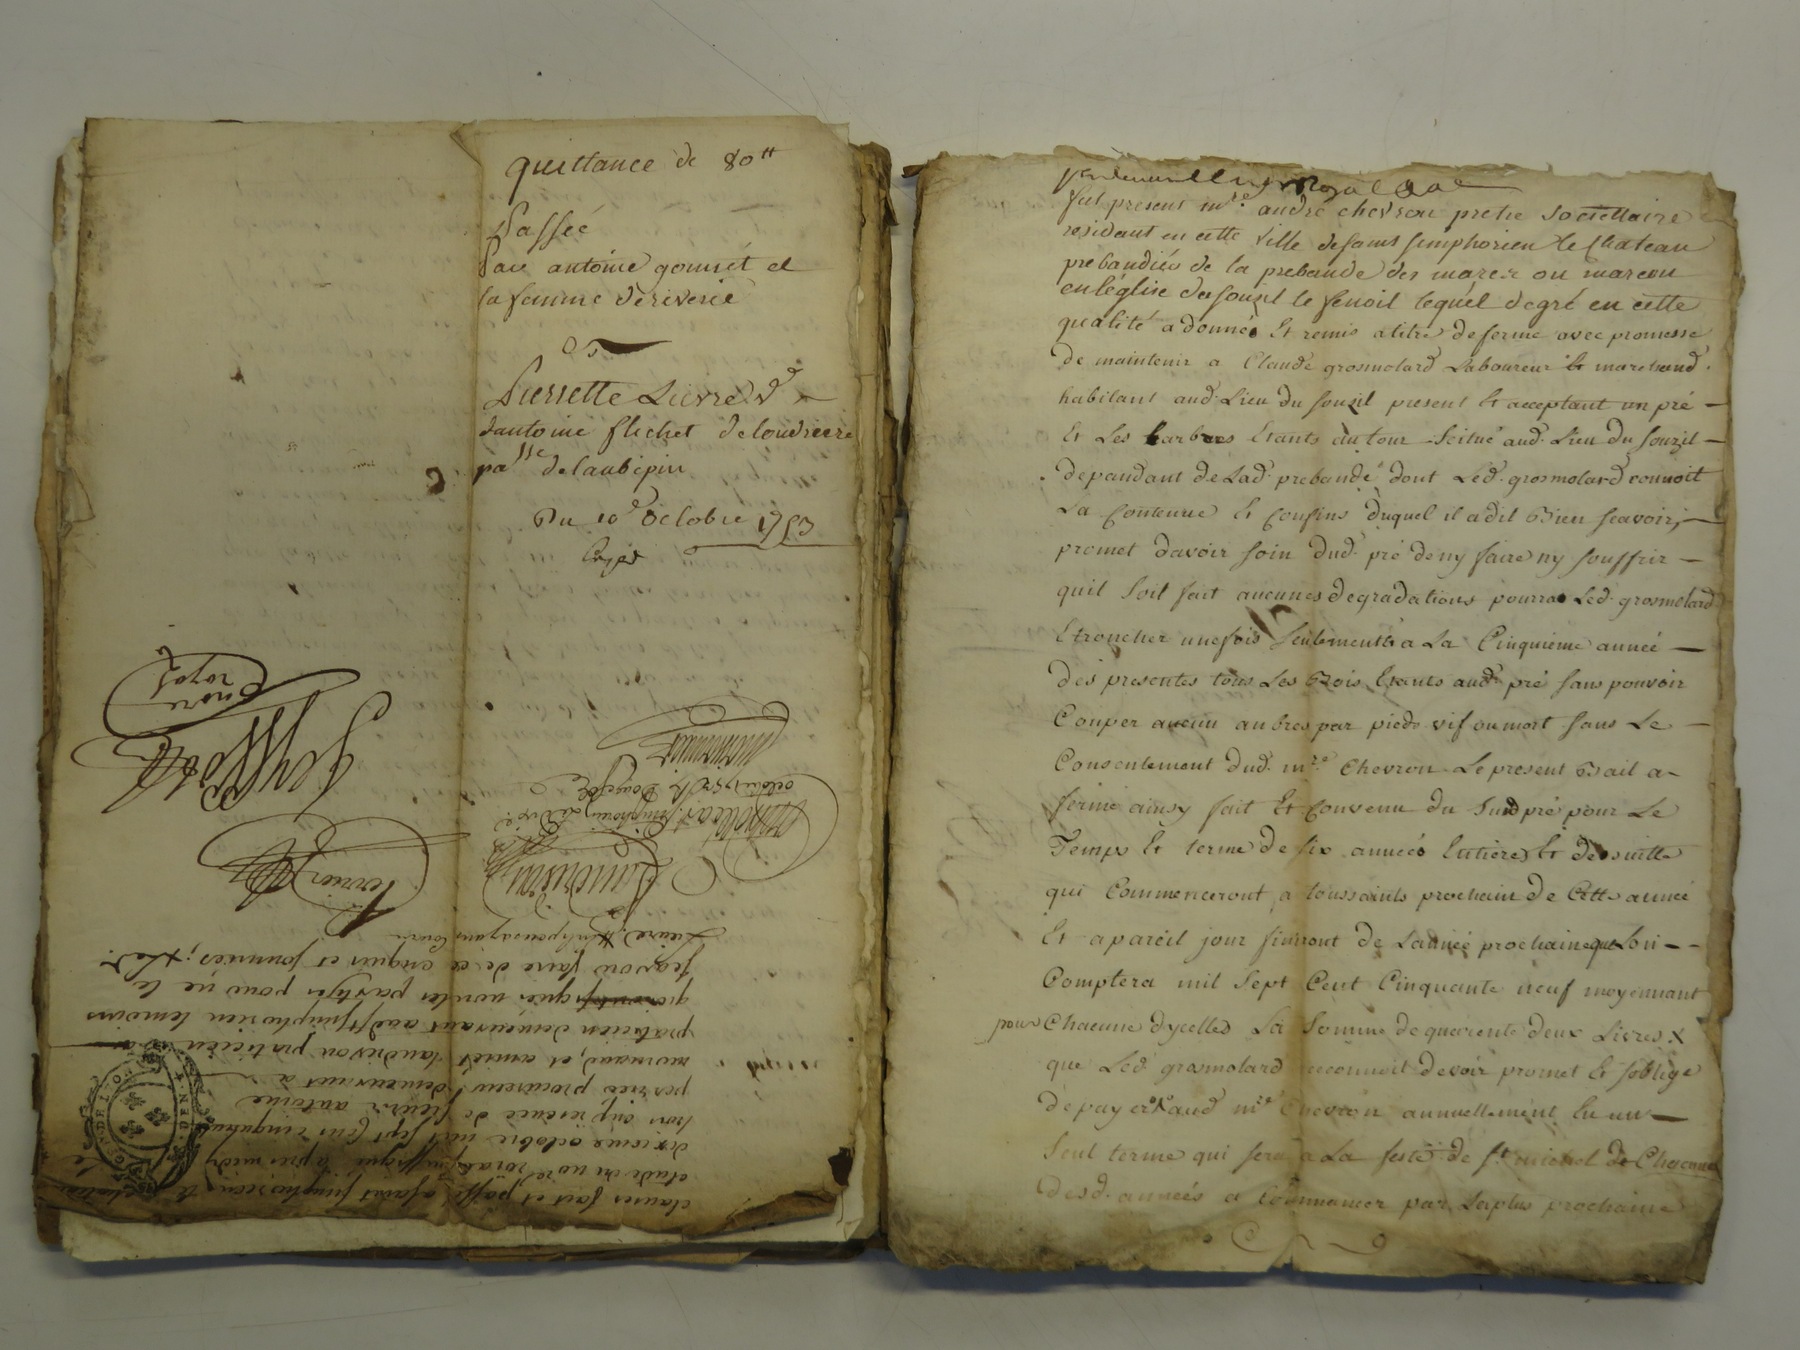 quittance de 80tt
Passée
Par antoine gonnet et
sa femme de riverie
a
Pierrette Lievre vd
dantoine flechet de
psse de laubépin
Du 10e Octobre 1753
clauses fait et passé a saint simphorien le chateau
etude du nore royal soussigné apres midy le
dixieme octobre mil sept cens cinquante
trois en presence de sieur antoine
perrier procureur demeurant a
et annet landrivon praticien
praticien demeurant audt st simphorien temoins
qui ont signé non les partyes pour ne le
sçavoir faire de ce enquis et sommées
Perrier
Landrivon
nore
royal
fut present mre andré chevron pretre societtaire
residant en cette ville de saint simphorien le chateau
prebandier de la prebande des mazer ou mareon
en léglise du souzil le fenoil lequel de gré en cette
qualité a donné Et remis a titre de ferme avec promesse
de maintenir a Claude grosmolard Laboureur Et marchand
habitant aud. Lieu du souzil present Et acceptant un pré
Et Les arbres Etants au tour scitué aud. Lieu du souzil
dependant de Lad. prebande dont Led. grosmolard connoit
La contenue Et confins duquel il a dit Bien sçavoir,
promet davoir soin dud. pré de ny faire ny souffrir
quil soit fait aucunes degradations pourra Led. grosmolard
Etroncher une fois seulement a La Cinquieme année
des presentes tous Les Bois Etants aud. pré sans pouvoir
Couper aucun arbres par pieds vif ou mort sans Le
Consentement dud. mre Chevron Le present Bail a
ferme ainsy fait Et Convenu du susd pré pour Le
Temps Et terme de six années Entieres Et de suitte
qui Commenceront a toussaints prochain de Cette année
Et a pareil jour finiront de Lannée prochaine que Lon
Comptera mil Sept Cent Cinquante neuf moyennant
pour Chacune dycelles La Somme de quarente deux Livres
que Led grosmolard reconnoit devoir promet Et soblige
de payer aud mre Chevron annuellement En un
Seul terme qui sera a La feste de st michel de Chacune
desd. années a Commancer par La plus prochaine